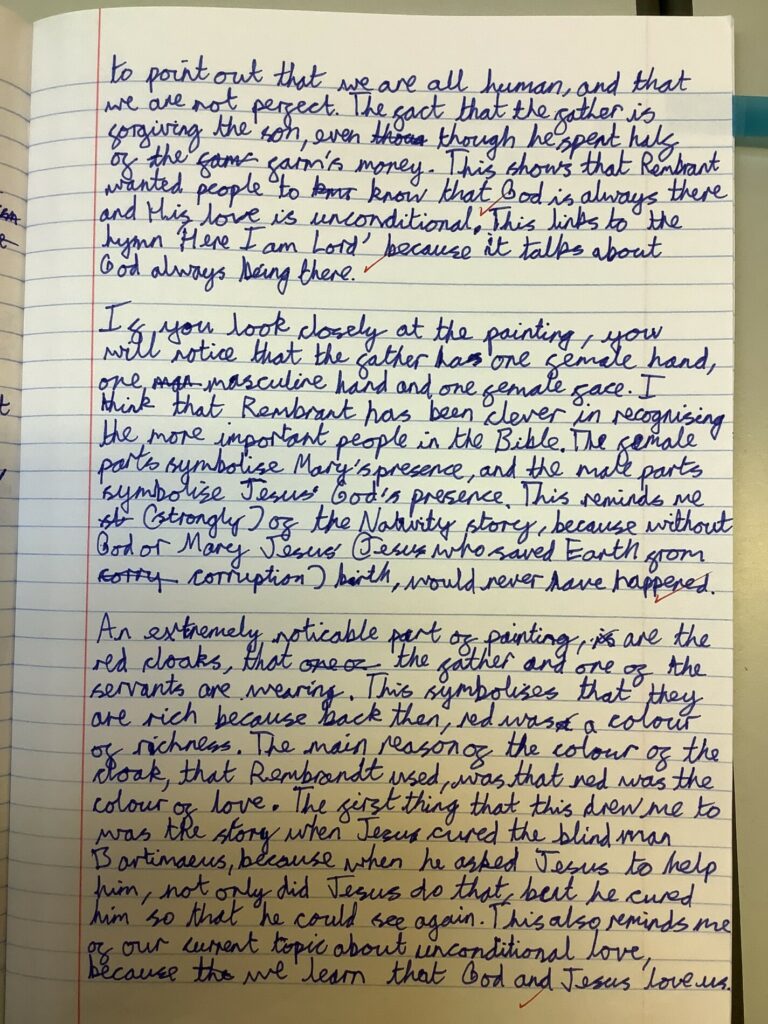 to point out that we are all human, and that
we are not perfect. The fact that the father is
forgiving the son, even thoug though he spent half
of the fams farm's money. This shows that Rembrant
wanted people to know that God is always there
and His love is unconditional. This links to the
hymn 'Here I am Lord' because it talks about
God always being there.
If you look closely at the painting, you
will notice that the father has one female hand,
one man masculine hand and one female face. I
think that Rembrant has been clever in recognising
the more important people in the Bible. The female
parts symbolise Mary's presence, and the male parts
symbolise Jesus' God's presence. This reminds me
st (strongly) of the Nativity story, because without
God or Mary Jesus' (Jesus who saved Earth from
corry corruption) birth, would never have happened.
An extremely noticable part of painting, is are the
red cloaks, that one of the father and one of the
servants are wearing. This symbolises that they
are rich because back then, red was a colour
of richness. The main reason of the colour of the
cloak, that Rembrandt used, was that red was the
colour of love. The first thing that this drew me to
was the story when Jesus cured the blind man
Bartimaeus, because when he asked Jesus to help
him, not only did Jesus do that, but he cured
him so that he could see again. This also reminds me
of our current topic about unconditional love,
because the we learn that God and Jesus love us.